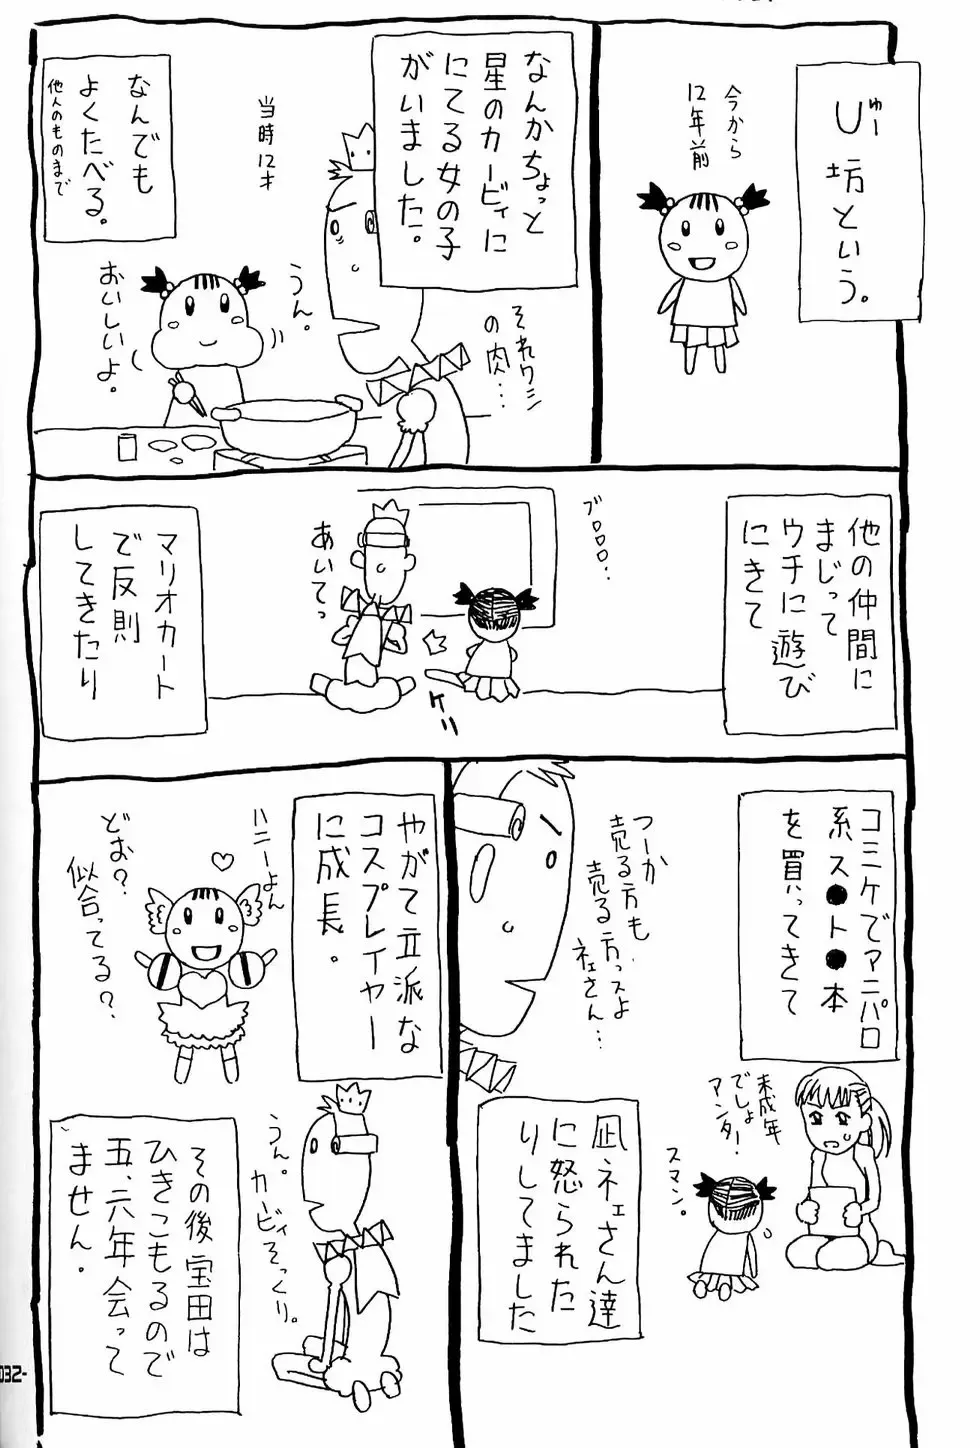 U坊という。
ゆー
今から
12年前
なんかちょっと
星のカービィに
にてる女の子
がいました。
それワシ
の肉…
うん。
当時12才
なんでも
よくたべる。
他人のものまで
おいしいよ。
他の仲間に
まじって
ウチに遊び
にきて
ブロロロ…
あいてっ
ケリ
マリオカート
で反則
してきたり
コミケでアニパロ
系ス●ト●本
を買ってきて
つーか
売る方も
売る方っスよ
ネェさん…
未成年
でしょ
アンタ!
スマン。
凪ネェさん達
に怒られた
りしてました
やがて立派な
コスプレイヤー
に成長。
ハニーよん
どお?
似合ってる?
うん。
カービィそっくり。
その後宝田は
ひきこもるので
五、六年会って
ません。
032-